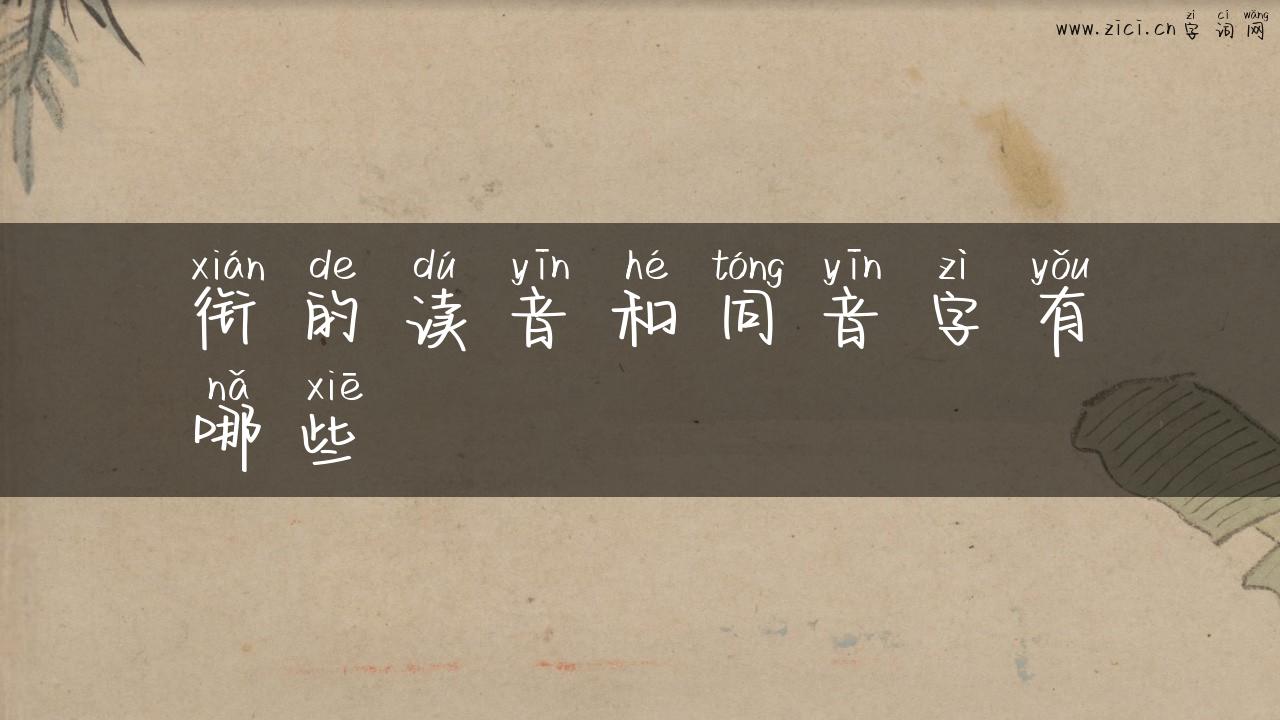 zì cí wǎng
www.zici.cn 字词网
xián de dú yīn hé tóng yīn zì yǒu
衔的读音和同音字有
nǎ xiē
哪些